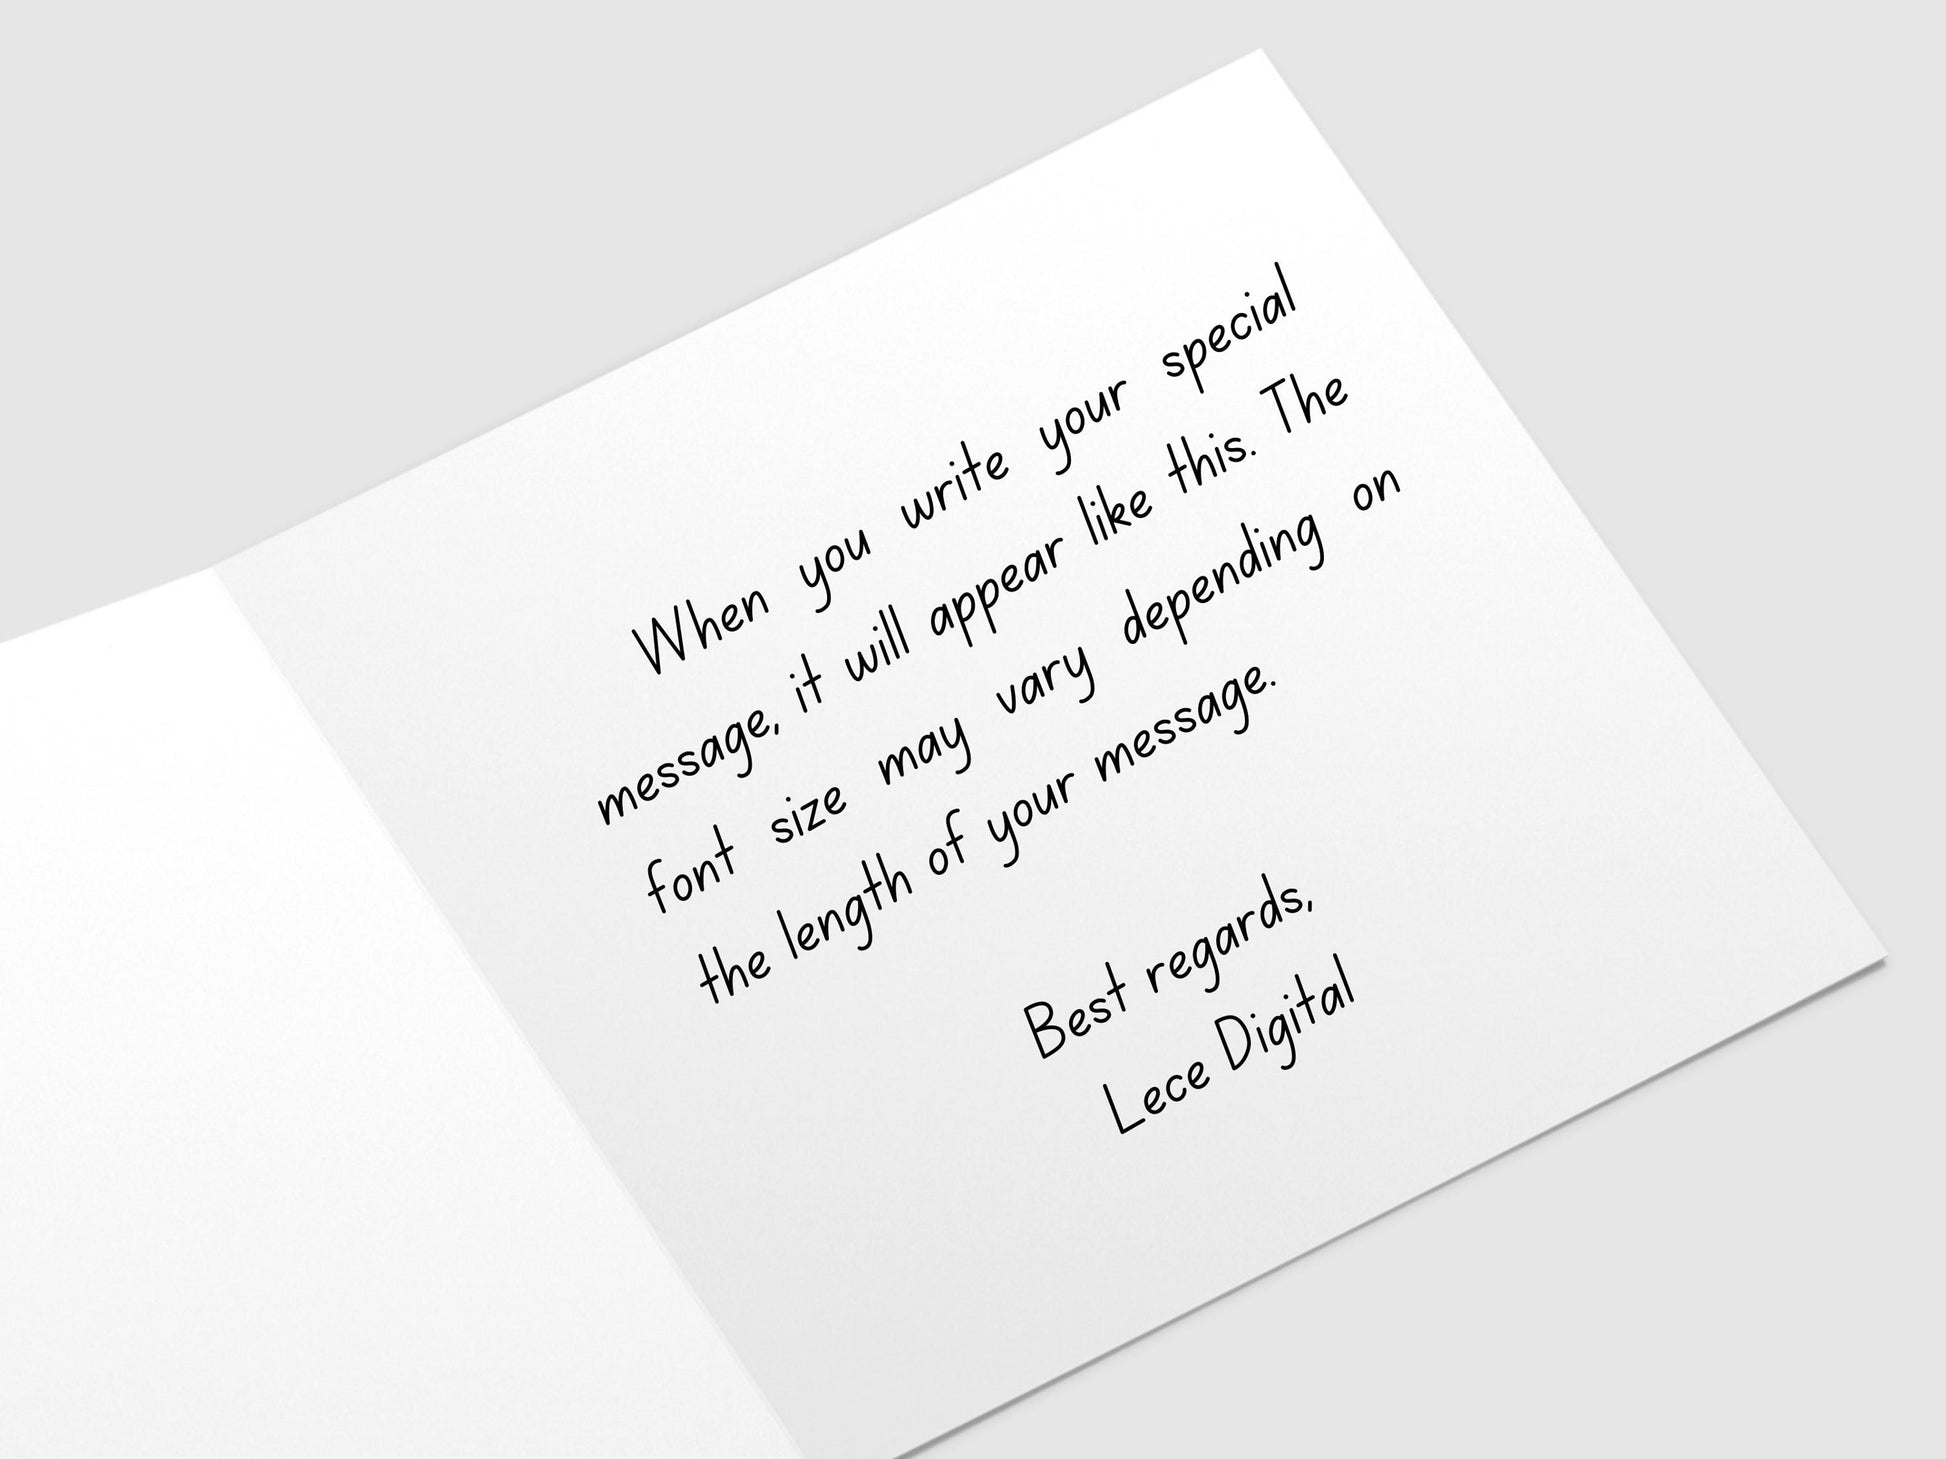 When you write your special
message, it will appear like this. The
font size may vary depending on
the length of your message.
Best regards,
Lece Digital